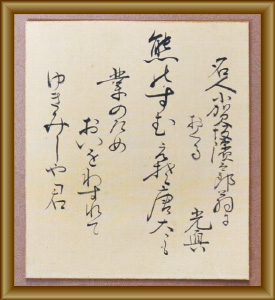 名人小加濱次郎翁に
おくる　光興
熊のすむえぞ唐太も
業のため
おいをわすれて
ゆきみしや君